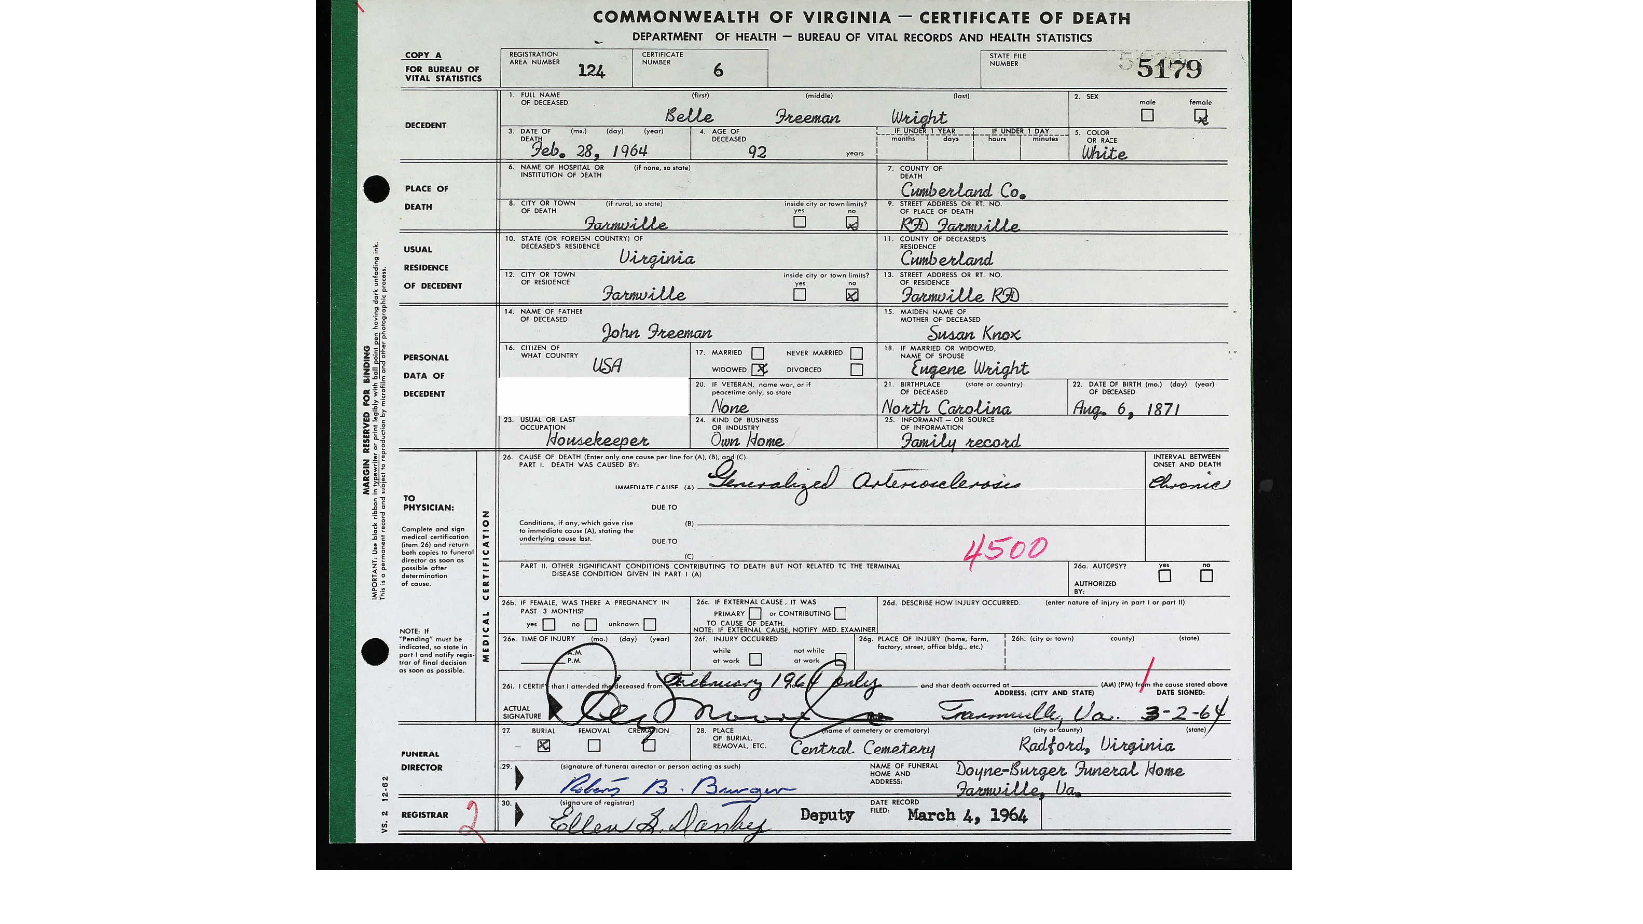 COMMONWEALTH OF VIRGINIA — CERTIFICATE OF DEATH
DEPARTMENT OF HEALTH — BUREAU OF VITAL RECORDS AND HEALTH STATISTICS
COPY A
FOR BUREAU OF VITAL STATISTICS
REGISTRATION AREA NUMBER 124
CERTIFICATE NUMBER 6
STATE FILE NUMBER 5179
DECEDENT
1. FULL NAME OF DECEASED (first) (middle) (last)
Belle Freeman Wright
2. SEX male female
3. DATE OF DEATH (mo.) (day) (year)
Feb. 28, 1964
4. AGE OF DECEASED
92 years
IF UNDER 1 YEAR months days
IF UNDER 1 DAY hours minutes
5. COLOR OR RACE
White
PLACE OF DEATH
6. NAME OF HOSPITAL OR INSTITUTION OF DEATH (if none, so state)
7. COUNTY OF DEATH
Cumberland Co.
8. CITY OR TOWN OF DEATH (if rural, so state)
Farmville
inside city or town limits? yes no
9. STREET ADDRESS OR RT. NO. OF PLACE OF DEATH
RFD Farmville
USUAL RESIDENCE OF DECEDENT
10. STATE (OR FOREIGN COUNTRY) OF DECEASED'S RESIDENCE
Virginia
11. COUNTY OF DECEASED'S RESIDENCE
Cumberland
12. CITY OR TOWN OF RESIDENCE
Farmville
inside city or town limits? yes no
13. STREET ADDRESS OR RT. NO. OF RESIDENCE
Farmville RFD
PERSONAL DATA OF DECEDENT
14. NAME OF FATHER OF DECEASED
John Freeman
15. MAIDEN NAME OF MOTHER OF DECEASED
Susan Knox
16. CITIZEN OF WHAT COUNTRY
USA
17. MARRIED NEVER MARRIED
WIDOWED DIVORCED
18. IF MARRIED OR WIDOWED, NAME OF SPOUSE
Eugene Wright
20. IF VETERAN, name war, or if peacetime only, so state
None
21. BIRTHPLACE (state or country) OF DECEASED
North Carolina
22. DATE OF BIRTH (mo.) (day) (year) OF DECEASED
Aug. 6, 1871
23. USUAL OR LAST OCCUPATION
Housekeeper
24. KIND OF BUSINESS OR INDUSTRY
Own Home
25. INFORMANT — OR SOURCE OF INFORMATION
Family record
MARGIN RESERVED FOR BINDING
IMPORTANT: Use black ribbon in typewriter or print legibly with ball point pen having dark unfading ink.
This is a permanent record and subject to reproduction by microfilm and other photographic process.
TO PHYSICIAN:
Complete and sign medical certification (item 26) and return both copies to funeral director as soon as possible after determination of cause.
NOTE: If "Pending" must be indicated, so state in part I and notify registrar of final decision as soon as possible.
MEDICAL CERTIFICATION
26. CAUSE OF DEATH (Enter only one cause per line for (A), (B), and (C)
PART I. DEATH WAS CAUSED BY:
INTERVAL BETWEEN ONSET AND DEATH
IMMEDIATE CAUSE (A) Generalized Arteriosclerosis Chronic
DUE TO
Conditions, if any, which gave rise to immediate cause (A), stating the underlying cause last.
(B)
DUE TO
(C)
4500
PART II. OTHER SIGNIFICANT CONDITIONS CONTRIBUTING TO DEATH BUT NOT RELATED TO THE TERMINAL DISEASE CONDITION GIVEN IN PART I (A)
26a. AUTOPSY? yes no
AUTHORIZED BY:
26b. IF FEMALE, WAS THERE A PREGNANCY IN PAST 3 MONTHS?
yes no unknown
26c. IF EXTERNAL CAUSE, IT WAS
PRIMARY or CONTRIBUTING
TO CAUSE OF DEATH.
NOTE: IF EXTERNAL CAUSE, NOTIFY MED. EXAMINER
26d. DESCRIBE HOW INJURY OCCURRED. (enter nature of injury in part I or part II)
26e. TIME OF INJURY (mo.) (day) (year)
A.M.
P.M.
26f. INJURY OCCURRED
while at work not while at work
26g. PLACE OF INJURY (home, farm, factory, street, office bldg., etc.)
26h. (city or town) county) (state)
26i. I CERTIFY that I attended the deceased from February 1964 only and that death occurred at (AM) (PM) from the cause stated above
ADDRESS: (CITY AND STATE) DATE SIGNED:
ACTUAL SIGNATURE
Farmville, Va. 3-2-64
FUNERAL DIRECTOR
27. BURIAL REMOVAL CREMATION
28. PLACE OF BURIAL, REMOVAL, ETC.
(name of cemetery or crematory) (city or county) (state)
Central Cemetery Radford, Virginia
29. (signature of funeral director or person acting as such)
B. Burger
NAME OF FUNERAL HOME AND ADDRESS:
Doyne-Burger Funeral Home
Farmville, Va.
REGISTRAR
30. (signature of registrar)
Ellen
Deputy
DATE RECORD FILED: March 4, 1964
VS. 2 12-62
2